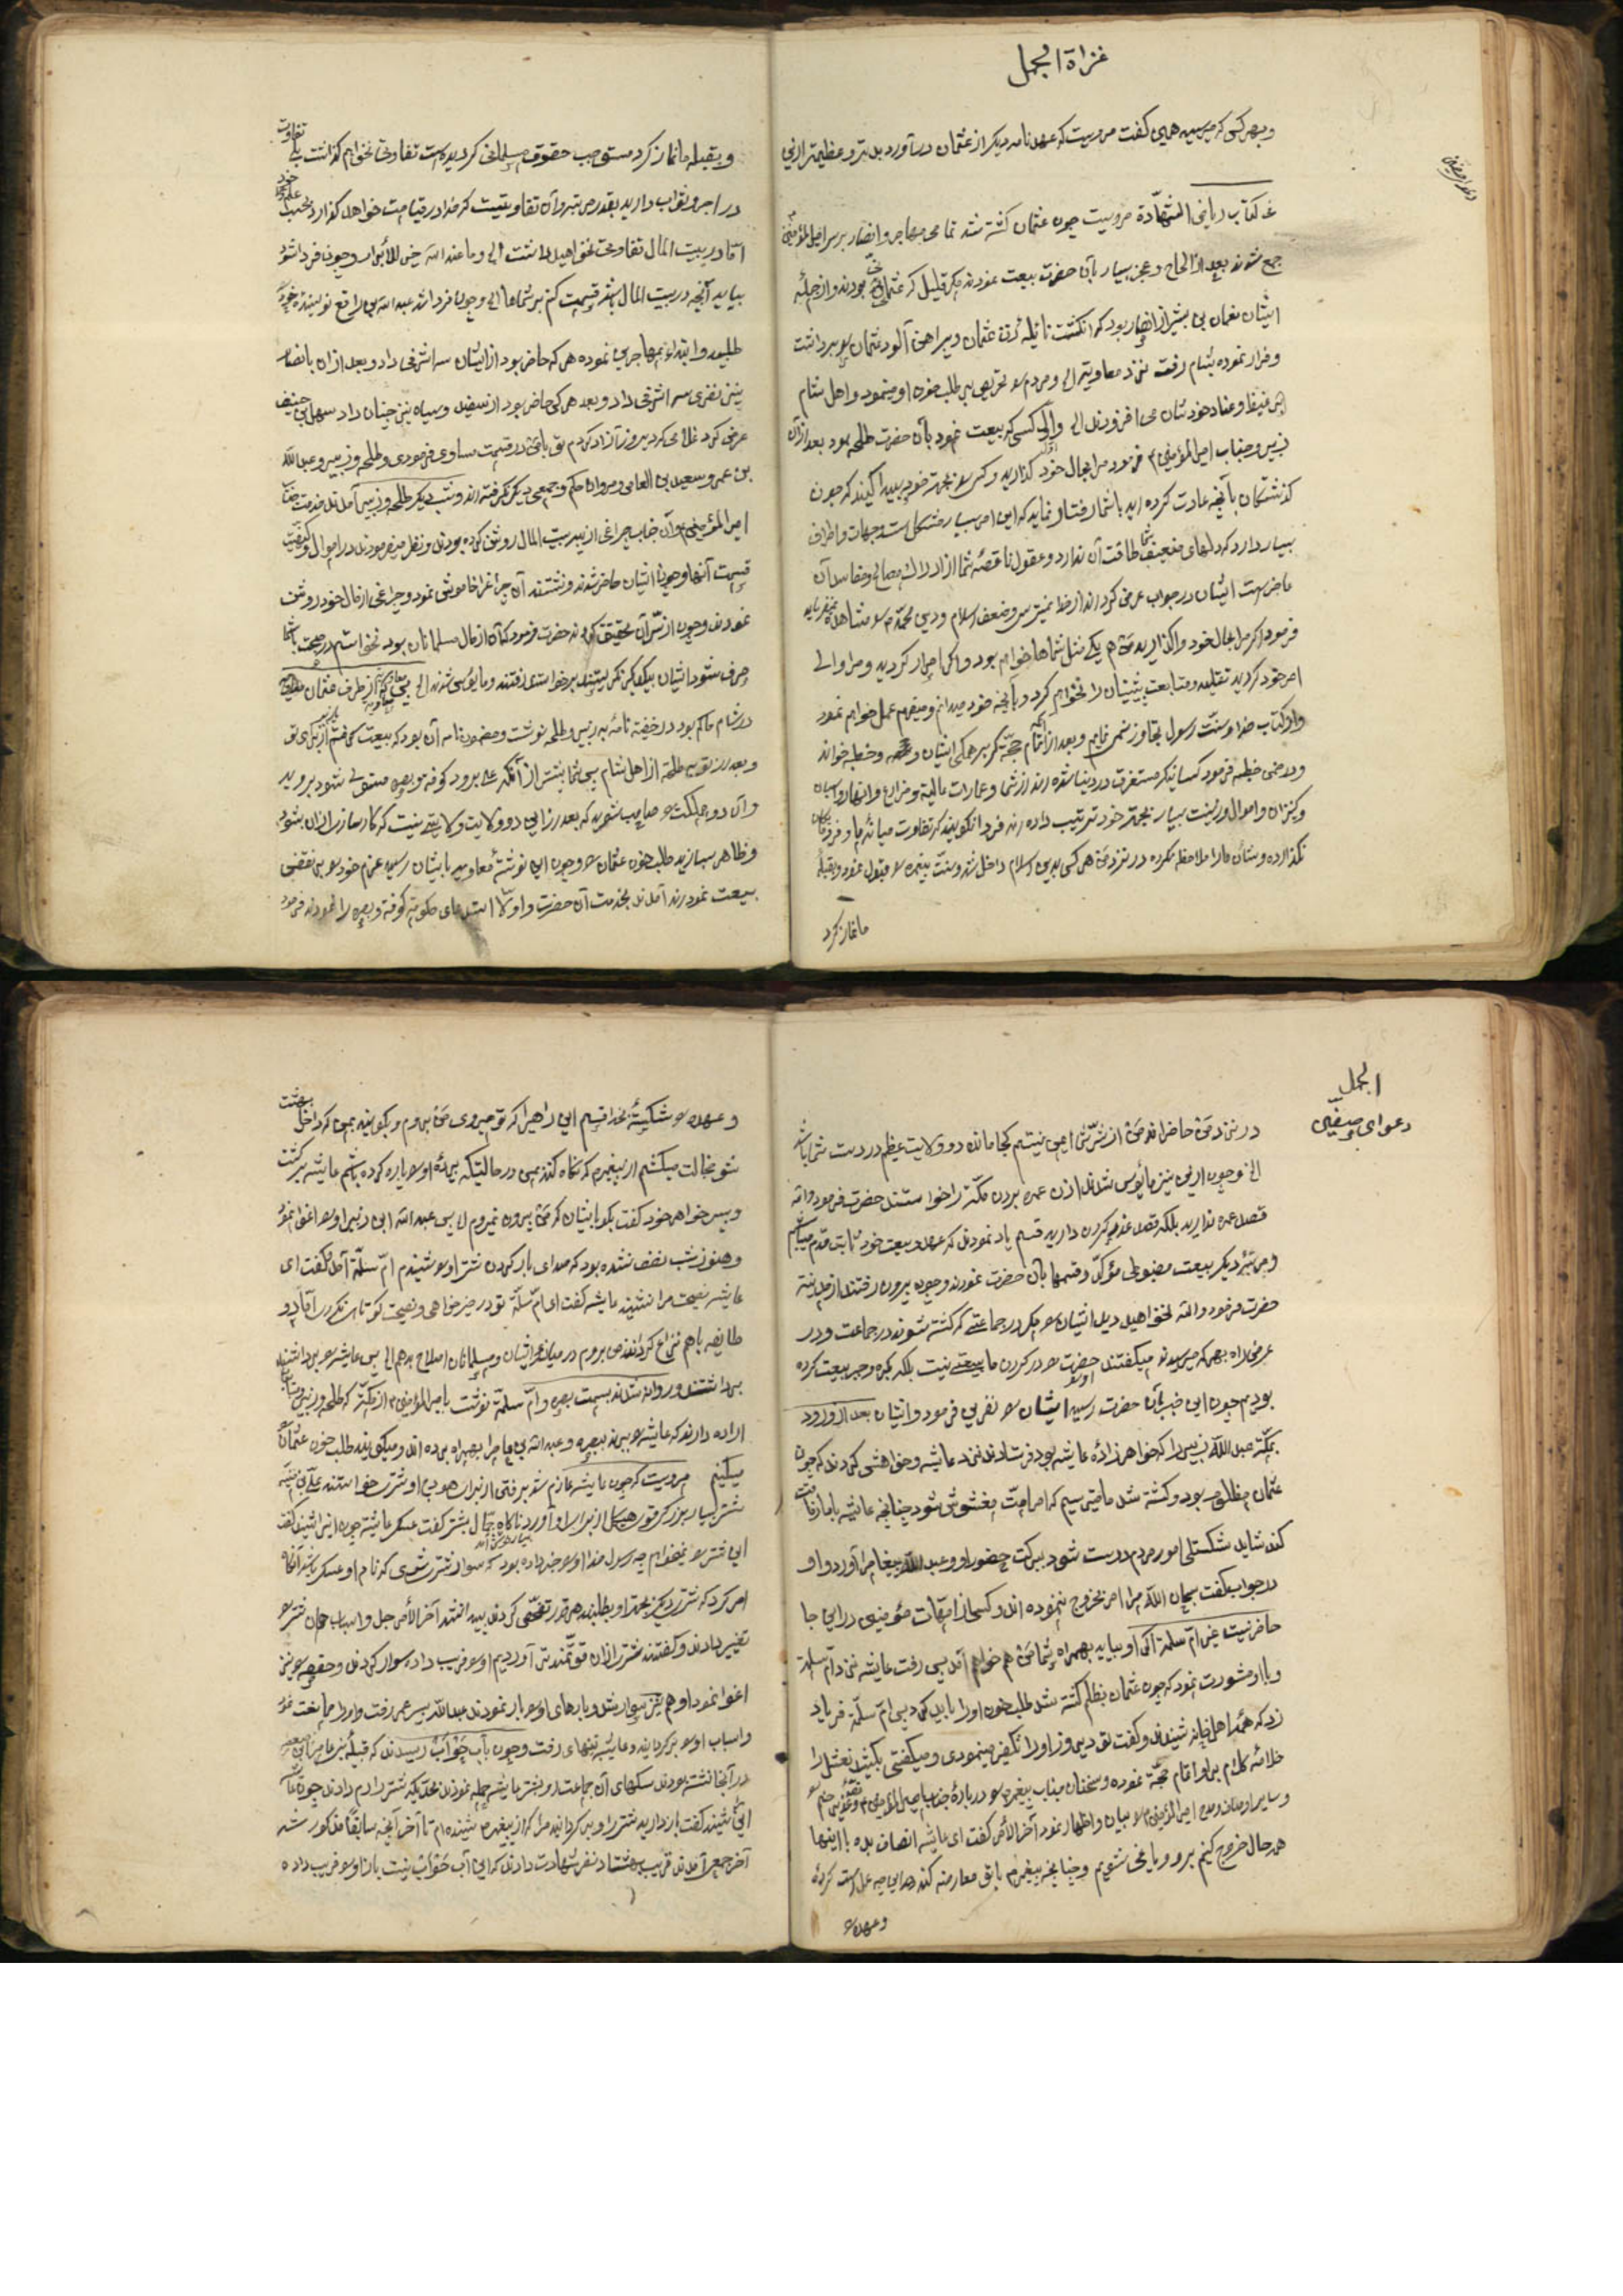 غزاة الجمل
وبهر کسی که میرسید همین گفت مرویست که عهدنامه دیگر از عثمان درآورد بدتر و عظیمتر از این
کتاب ریاض الشهادة مرویست چون عثمان کشته شد تمامی مهاجر و انصار بر سر امیرالمؤمنین
جمع شوند بعد از الحاح و عجز بسیار بآن حضرت بیعت نمودند مگر قلیل که عثمانی بودند و از جمله
ایشان نعمان بن بشیر از انصار بود که انگشت نایله زن عثمان و پیراهن خون آلود عثمان را برداشت
و فرار نموده بشام رفت نزد معاویه الی و مردم را تحریص بر طلب خون او مینمود و اهل شام
الی واول کسی که بیعت نمود بآن حضرت طلحه بود بعد از آن
زبیر و جناب امیرالمؤمنین فرمود مرا بحال خود گذارید و کسی را بجهة خود پیدا کنید که چون
گذشتگان بآنچه عادت کرده اید با شما رفتار نماید که این امر بسیار مشکل است و جهات و اطراف
بسیار دارد که دلهای ضعیف شما طاقت آن ندارد و عقول ناقصه شما از ادراک مصالح و مفاسد آن
عاجز است ایشان در جواب عرض کردند از خدا نمیترسی و ضعف اسلام و دین محمد را مشاهده نمیفرمایید
فرمود اگر مرا بحال خود واگذارید من هم یکی مثل شماها خواهم بود و اگر اصرار کردید و مرا والی
امر خود کردید تقلید و متابعت پیشینیان را نخواهم کرد و بآنچه خود میدانم و میفهمم عمل خواهم نمود
و از کتاب خدا و سنت رسول تجاوز نمی نمایم و بعد از اتمام حجة بر همگی ایشان و خطبه خواند
و در ضمن خطبه فرمود کسانیکه مستغرق در دنیا شده اند از زر و عمارات عالیه و مزارع و انهار و اسبان
و کنیزان و اموال و زینت بسیار بجهة خود ترتیب داده اند فردا نگویند که تفاوت میانه ما و فرزندان
نگذارده و شان ما را ملاحظه نکرده در نزد من هر کس بدین اسلام داخل شد و سنت پیغمبر را قبول نمود و بقبله
ما نماز کرد
و بقبله ما نماز کرد مستوجب حقوق مسلمانی گردیده است تفاوتی نخواهم گذاشت بلی تفاوت
در اجر و ثواب دارید بقدر مرتبه و آن تفاوتیست که خدا در قیامت خواهد گذارد بحسب علم خود
اما در بیت المال تفاوتی نخواهید داشت الی وما عند الله خیر للأبرار و چون فردا شود
بیایید آنچه در بیت المال باشد قسمت کنم بر شماها الی و چون فردا شد عبدالله بن رافع نویسنده خود را
طلبید و ابتدا بمهاجرین نموده هر که حاضر بود از ایشان سه اشرفی داد و بعد از آن بانصار
نیز نفری سه اشرفی داد و بعد هر کس حاضر بود از سفید و سیاه نیز چنان داد سهل بن حنیف
عرض کرد غلامی که دیروز آزاد کردم تو با من در قسمت مساوی فرمودی و طلحه و زبیر و عبدالله
بن عمر و سعید بن العاص و مروان حکم و جمعی دیگر نگرفته اند و شب دیگر طلحه و زبیر آمدند خدمت جناب
امیرالمؤمنین و آن جناب چراغی از بیت المال روشن کرده بودند و نظر میفرمودند در اموال و کیفیت
قسمت آنها و چون ایشان حاضر شدند و نشستند آن چراغ را خاموش نمود و چراغی از مال خود روشن
نمودند و چون از سر آن تحقیق کردند حضرت فرمود که آن از مال مسلمانان بود نخواستم در صحبت با شما
صرف شود ایشان بیکدیگر نگریستند برخواستند رفتند و مایوس شدند الی پس معاویه که از طرف عثمان
در شام حاکم بود در خفیه نامه به زبیر و طلحه نوشت و مضمون نامه آن بود که بیعت گرفتم از برای تو
و بعد از تو به طلحه از اهل شام پس شما پیشتر از آنکه علی برود کوفه و بصره متولی شود بروید
و آن دو مملکت را صاحب شوید که بعد از این دو ولایت ولایتی نیست که کارسازی از آن بشود
و ظاهر سازید طلب خون عثمان را و چون این نوشته معاویه بایشان رسید عزم خود را بر نقض
بیعت نمودند آمدند بخدمت آن حضرت و اولا استدعای حکومت کوفه و بصره را نمودند فرمود
الجمل
دعوای صفین
در نزد من حاضرند من از شرش ایمن نیستم کجا مانده دو ولایت عظیم در دست شما باشد
الخ و چون از این نیز مأیوس شدند اذن عمره بردن مکه را خواستند حضرت فرمود والله
قصد عمره ندارید بلکه قصد غدر کردن دارید قسم یاد نمودند که بر عهد و بیعت خود ثابت قدم میباشیم
و مرتبه دیگر بیعت مضبوطی مؤکد و قسمها بآن حضرت نمودند و چون بیرون رفتند از مدینه
حضرت فرمود والله نخواهید دید ایشان را مگر در جماعتی که کشته شوند در جماعت و در
عرض راه بهر که میرسیدند میگفتند حضرت را در گردن ما بیعتی نیست بلکه بکره و جبر بیعت کرده
بودیم چون این خبر بآن حضرت رسید ایشان را نفرین فرمود و ایشان بعد از ورود
بمکه عبدالله زبیر را که خواهر زاده عایشه بود فرستادند نزد عایشه و خواهش کردند که چون
عثمان مظلوم بود و کشته شد ما میترسیم که امر امت مغشوش شود چنانچه عایشه با ما رفاقت
کند شاید شکستگی امور مردم درست شود ببرکت حضور او و عبدالله پیغام را آورد و او
در جواب گفت سبحان الله مرا امر بخروج ننموده اند و کسی از امهات مؤمنین در این جا
حاضر نیست غیر ام سلمه اگر او بیاید بهمراه شما من هم خواهم آمد پس رفت عایشه نزد ام سلمه
و با او مشورت نمود که چون عثمان بظلم کشته شد طلب خون او را باید کرد پس ام سلمه فریاد
زد که همه اهل خانه شنیدند و گفت تو دیروز او را تکفیر مینمودی و میگفتی بکشید نعثل را
خلاصه کلام بر او اتمام حجة نموده و سخنان جناب پیغمبر را درباره جناب امیرالمؤمنین
و سایر اوصاف امیرالمؤمنین را بیان و اظهار نمود آخر الأمر گفت ای عایشه انصاف بده با اینها
همه حال خروج کنیم بر او و یاغی شویم و چنانچه پیغمبر با تو معارضه کند که این چه عمل است کرده
و عهد را
و عهد را شکسته بخدا قسم این راهی را که تو میروی من بروم و بگویند بمن که داخل بهشت
شو خجالت میکشم از پیغمبر که نگاه کند بمن در حالتیکه پرده او را پاره کرده باشم عایشه برگشت
و پسر خواهر خود گفت بگو بایشان که من بیرون نمیروم پس عبدالله ابن زبیر او را اغوا نمود
و هنوز شب نصف نشده بود که صدای بار کردن شتر او را شنیدم ام سلمه آمد گفت ای
عایشه نصیحت مرا نشنیدی عایشه گفت ای ام سلمه تو در خیرخواهی و نصیحت کوتاهی نکردی اما دو
طایفه با هم نزاع کرده اند میروم در میانه ایشان و مسلمانان اصلاح بدهم الی پس عایشه را برداشتند
برداشتند و روانه شدند بسمت بصره و ام سلمه نوشت بامیرالمؤمنین از مکه که طلحه و زبیر
اراده دارند که عایشه را ببرند ببصره و عبدالله بن عامر را بهمراه برده اند و میگویند طلب خون عثمان
میکنیم مرویست که چون عایشه عازم شد برفتن از برای هودج او شتری خواستند یعلی بن منیه
شتر بسیار بزرگ قوی هیکل از برای او آورد ناگاه جمال بشتر گفت عسکر عایشه چون این را شنید گفت
این شتر را نمیخواهم چه رسول خدا او را خبر داده بود که سوار شتر شوی که نام او عسکر باشد آنگاه
امر کرد که شتری دیگر بجهة او بطلبند هر قدر تفحص کردند پیدا نشد آخر الأمر جل و اسباب همان شتر را
تغییر دادند و گفتند شتری از آن قوتمندتر آوردیم او را فریب داده سوار کردند و حفصه را نیز
اغوا نمود او هم نیز سوار شد و بارهای او را بار نمودند عبدالله پسر عمر رفت و او را ممانعت نمود
و اسباب او را برگردانید و عایشه تنهای رفت و چون بآب حوأب رسیدند که قبیله بنی عامر بن صعصعه
در آنجا نشسته بودند سگهای آن جماعت بر شتر عایشه حمله نمودند بحدیکه شتر را رم دادند چون عایشه
این را شنید گفت باز دارید شتر را و برگردانید مرا که از پیغمبر شنیده ام تا آخر آنچه سابقا مذکور شد
آخر جمعی آمدند قریب بهشتاد نفر شهادت دادند که این آب حوأب نیست باز او را فریب داده